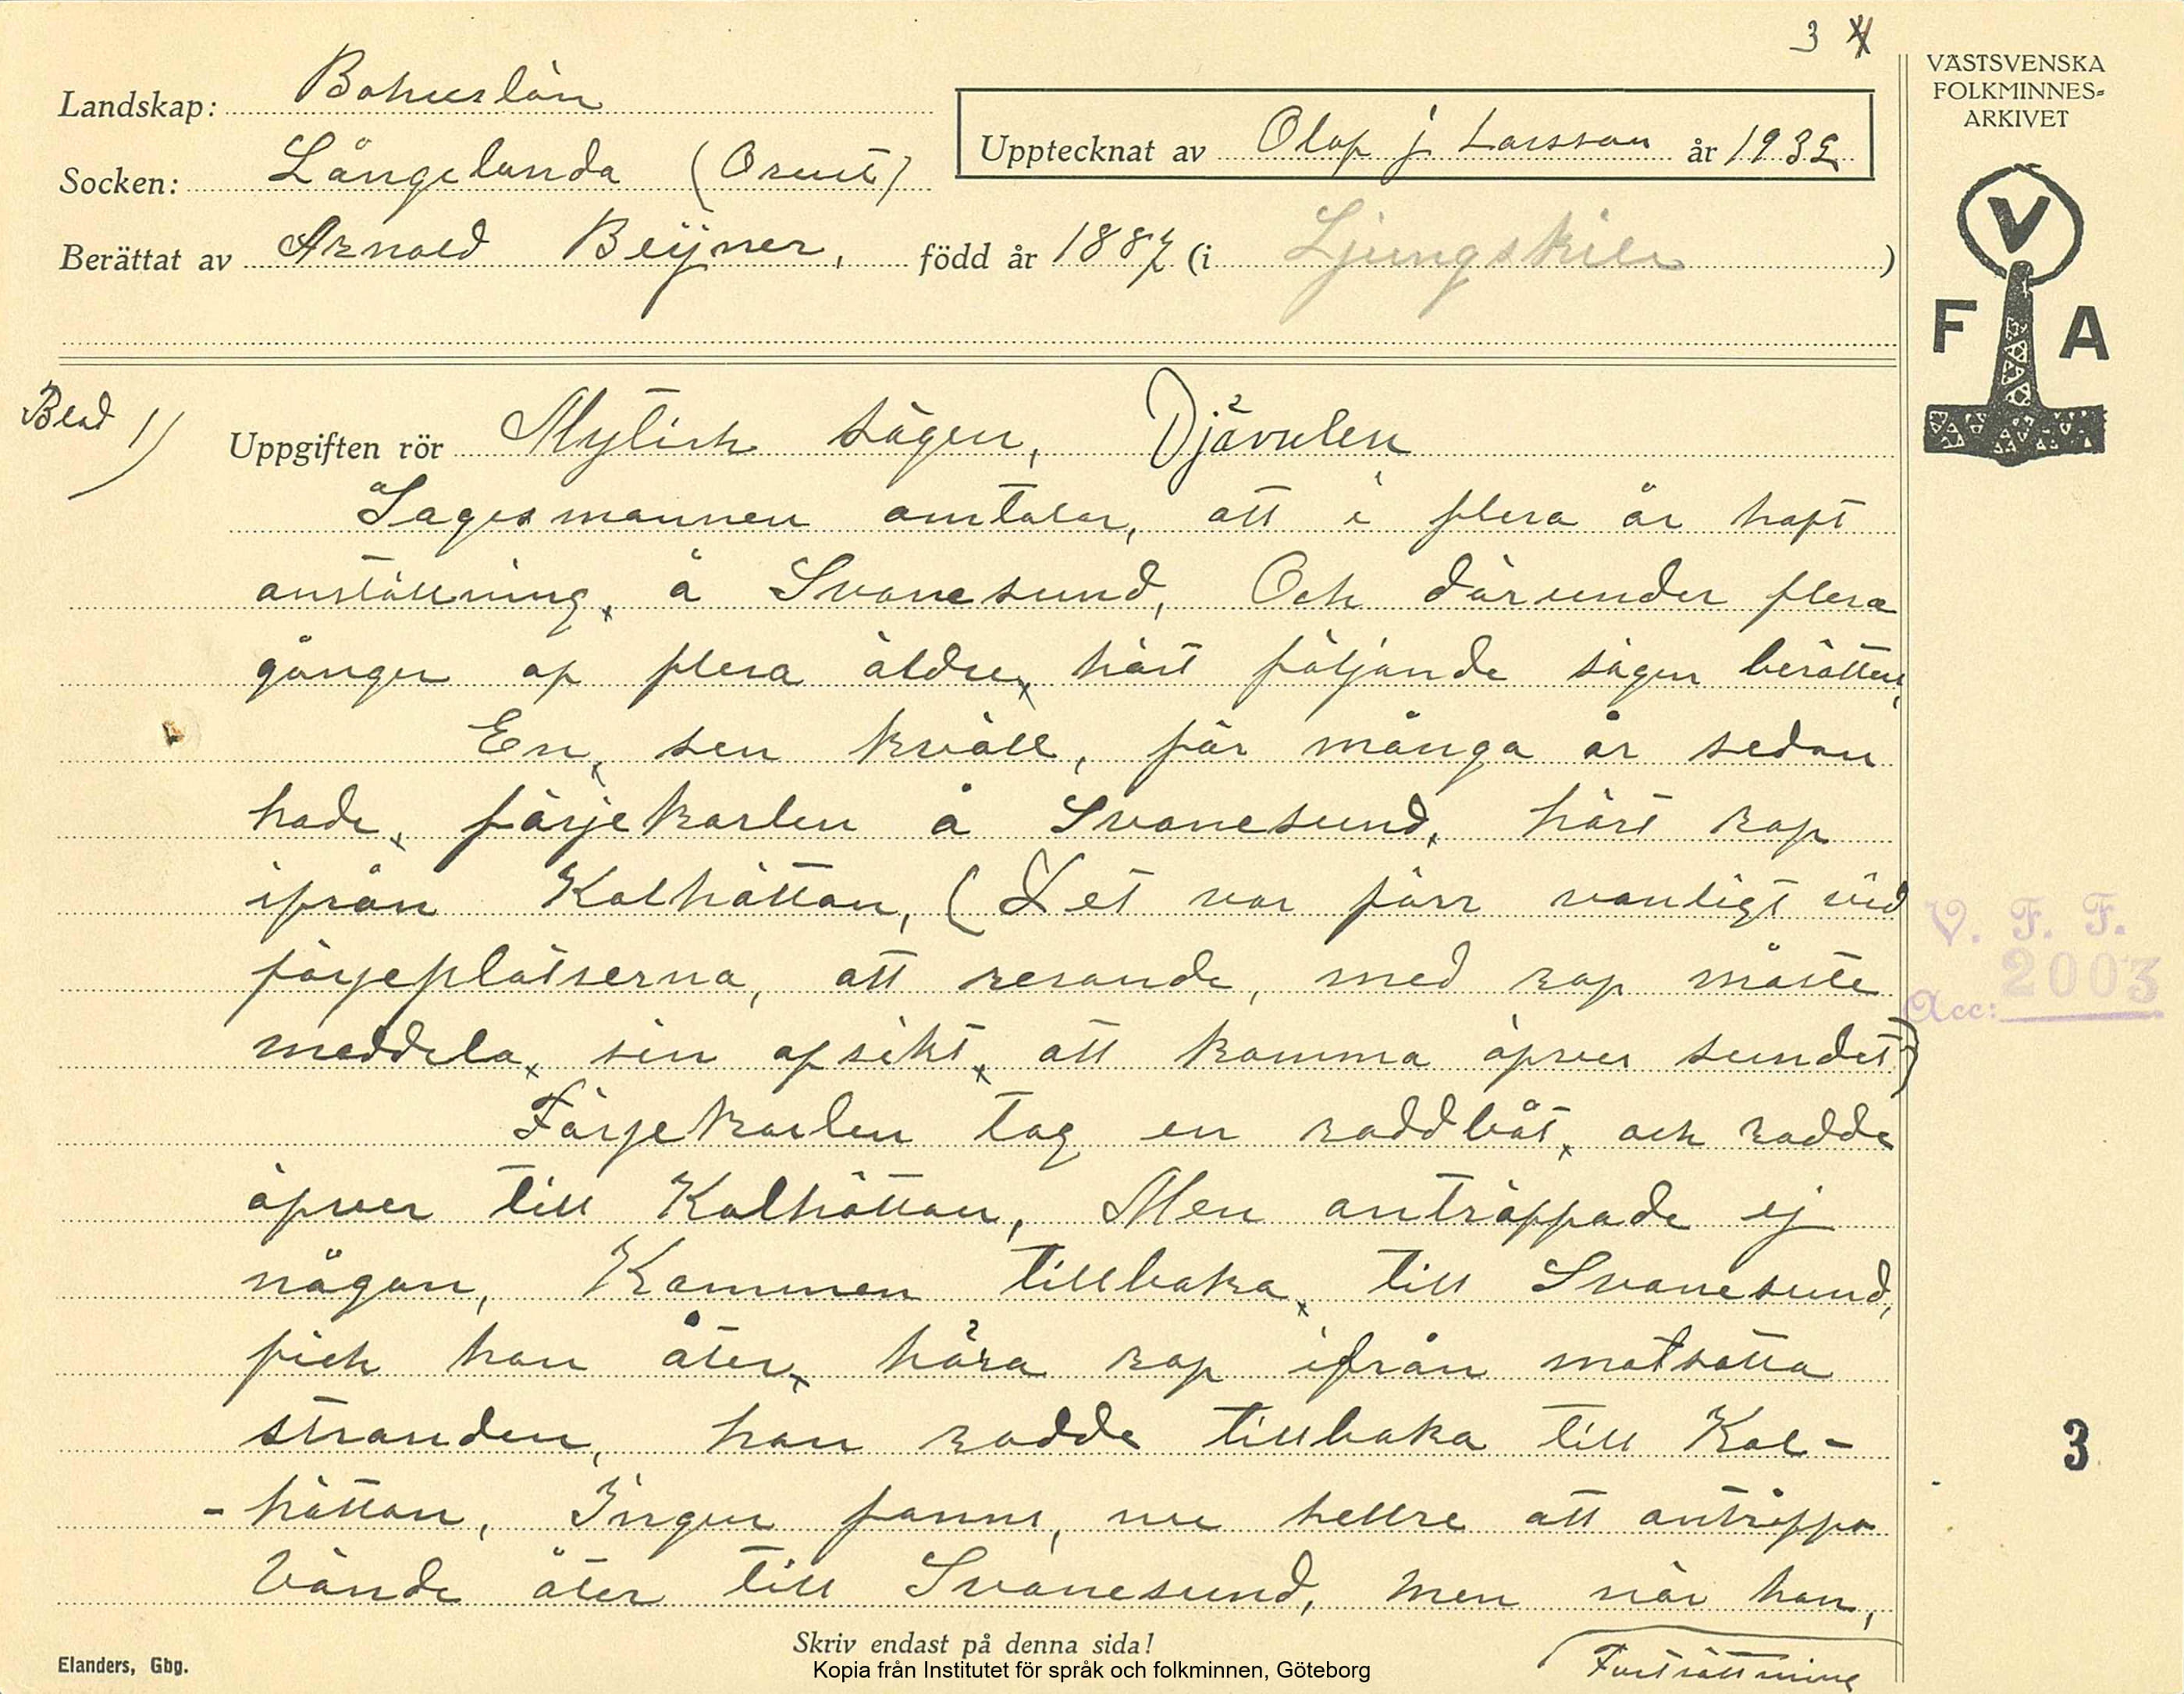 3
VÄSTSVENSKA
FOLKMINNES-
ARKIVET
Landskap: Bohuslän
Upptecknat av Olof J Larsson år 1932
Socken: Långelanda (Orust)
Berättat av Arnold Beijner, född år 1887 (i Ljungskile)
V
F A
Blad 1)
Uppgiften rör Mytisk sägen, Djävulen
Sagesmannen omtalar, att i flera år haft
anställning, å Svanesund, Och därunder flera
gånger af flera äldre, hört följande sägen berättas,
En, sen kväll, för många år sedan
hade, färjekarlen å Svanesund, hört rop
ifrån Kolhättan, (Det var förr vanligt vid
färjeplatserna, att resande, med rop måste
meddela, sin afsikt, att komma öfver sundet)
Färjekarlen tog en roddbåt, och rodde
öfver till Kolhättan, Men anträffade ej
någon, Kommen tillbaka, till Svanesund,
fick han åter, höra rop ifrån motsatta
stranden, han rodde tillbaka till Kol-
-hättan, Ingen fanns, nu hellre att anträffa
Vände åter till Svanesund, men när han,
V. F. F.
Acc: 2003
3
Skriv endast på denna sida!
Elanders, Gbg.
Kopia från Institutet för språk och folkminnen, Göteborg
Fortsättning